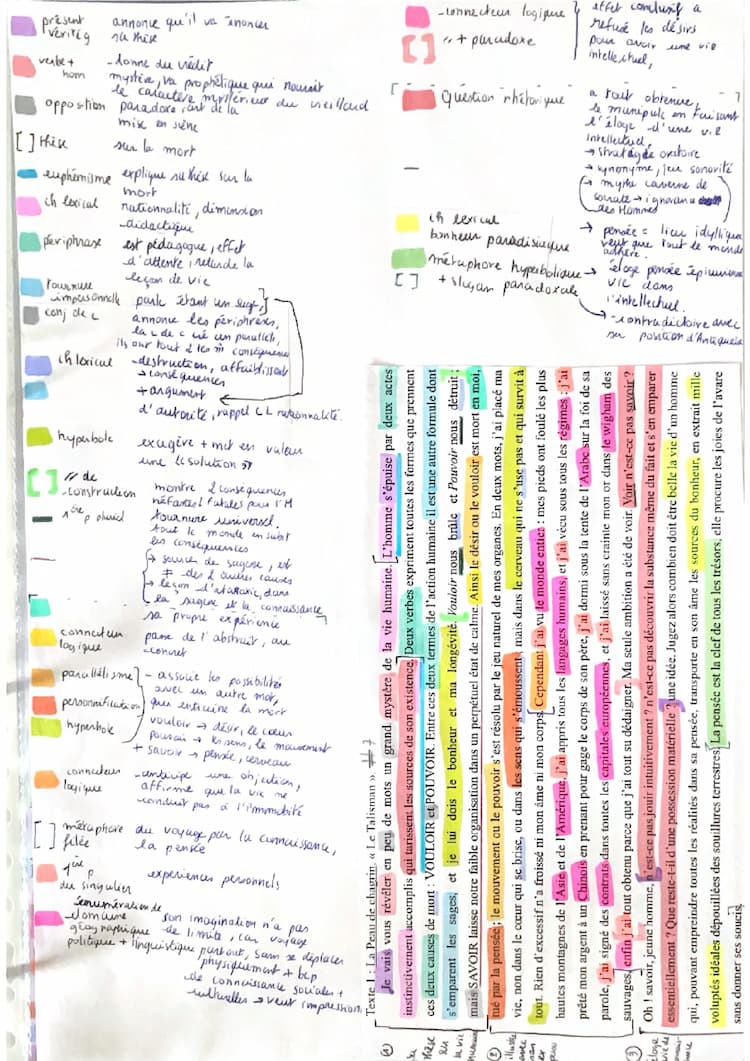 présent vérité
annonce qu'il va énoncer
sa thèse
verbe +
nom
- donne du crédit
mystère, va prophétique qui nourrit
le caractère mystérieux du vieillard
opposition
paradoxe, art de la
mise en scène
[ ] thèse
sur la mort
euphémisme
explique sa thèse sur la
mort
ch lexical
rationnalité, dimension
didactique
périphrase
est pédagogue, effet
d'attente, retarde la
leçon de vie
tournure
impersonnelle
conj de c
annonce les périphrases,
la c de c crée un parallèle,
ils ont tout 2 les m̂ conséquences
ch lexical
- destruction, affaiblissant
→ conséquences
+ argument
d'autorité, rappel CL rationnalité.
hyperbole
exagère + met en valeur
une 3è solution
[ ] // de
construction
montre 2 conséquences
néfastes & fatales pour l'H
1ère p pluriel
tournure universel.
tout le monde en subit
les conséquences
→ source de sagesse, est
≠ des 2 autres causes
→ leçon d'ataraxie, dans
la sagesse et la connaissance
sa propre expérience
connecteur
logique
passe de l'abstrait, au
concret
parallélisme
personnification
hyperbole
- associe les possibilités
avec un autre mot,
que entraîne la mort
vouloir → désir, le cœur
pouvoir → les sens, le mouvement
+ savoir → pensée, cerveau
connecteur
logique
- anticipe une objection,
affirme que la vie ne
conduit pas à l'immobilité
[ ] métaphore
filée
du voyage par la connaissance,
la pensée
1ère p
du singulier
expériences personnels
énumération de
domaine
géographique
politique + linguistique
son imagination n'a pas
de limite, car voyage
partout, sans se déplacer
physiquement + bcp
de connaissance sociales +
culturelles → veut impressionner
- connecteur logique
[ ] // + paradoxe
effet conclusif a
refusé les désirs
pour avoir une vie
intellectuel,
Question rhétorique
a tout obtenue,
le manipule en faisant
l'éloge d'une vie
intellectuel,
→ stratégie oratoire
→ synonyme, jeu sonorité
→ mythe caverne de
Socrate → ignorance
des Hommes
ch lexical
bonheur paradisiaque
→ pensée = lieu idyllique
veut que tout le monde
adhère.
métaphore hyperbolique
[ ] + slogan paradoxale
→ éloge pensée épicurienne
vie dans
l'intellectuel.
→ contradictoire avec
sa position d'Antiquaire
Texte 1 : La Peau de chagrin, « Le Talisman ». #7
Je vais vous révéler en peu de mots un grand mystère de la vie humaine. L'homme s'épuise par deux actes
instinctivement accomplis qui tarissent les sources de son existence. Deux verbes expriment toutes les formes que prennent
ces deux causes de mort : VOULOIR et POUVOIR. Entre ces deux termes de l'action humaine il est une autre formule dont
s'emparent les sages, et je lui dois le bonheur et ma longévité. Vouloir nous brûle et Pouvoir nous détruit ;
mais SAVOIR laisse notre faible organisation dans un perpétuel état de calme. Ainsi le désir ou le vouloir est mort en moi,
tué par la pensée ; le mouvement ou le pouvoir s'est résolu par le jeu naturel de mes organes. En deux mots, j'ai placé ma
vie, non dans le cœur qui se brise, ou dans les sens qui s'émoussent, mais dans le cerveau qui ne s'use pas et qui survit à
tout. Rien d'excessif n'a froissé ni mon âme ni mon corps. Cependant j'ai vu le monde entier : mes pieds ont foulé les plus
hautes montagnes de l'Asie et de l'Amérique, j'ai appris tous les langages humains, et j'ai vécu sous tous les régimes : j'ai
prêté mon argent à un Chinois en prenant pour gage le corps de son père, j'ai dormi sous la tente de l'Arabe sur la foi de sa
parole, j'ai signé des contrats dans toutes les capitales européennes, et j'ai laissé sans crainte mon or dans le wigham des
sauvages, enfin j'ai tout obtenu parce que j'ai tout su dédaigner. Ma seule ambition a été de voir. Voir n'est-ce pas savoir ?
Oh ! savoir, jeune homme, n'est-ce pas jouir intuitivement ? n'est-ce pas découvrir la substance même du fait et s'en emparer
essentiellement ? Que reste-t-il d'une possession matérielle ? une idée. Jugez alors combien doit être belle la vie d'un homme
qui, pouvant empreindre toutes les réalités dans sa pensée, transporte en son âme les sources du bonheur, en extrait mille
voluptés idéales dépouillées des souillures terrestres. La pensée est la clef de tous les trésors, elle procure les joies de l'avare
sans donner ses soucis.